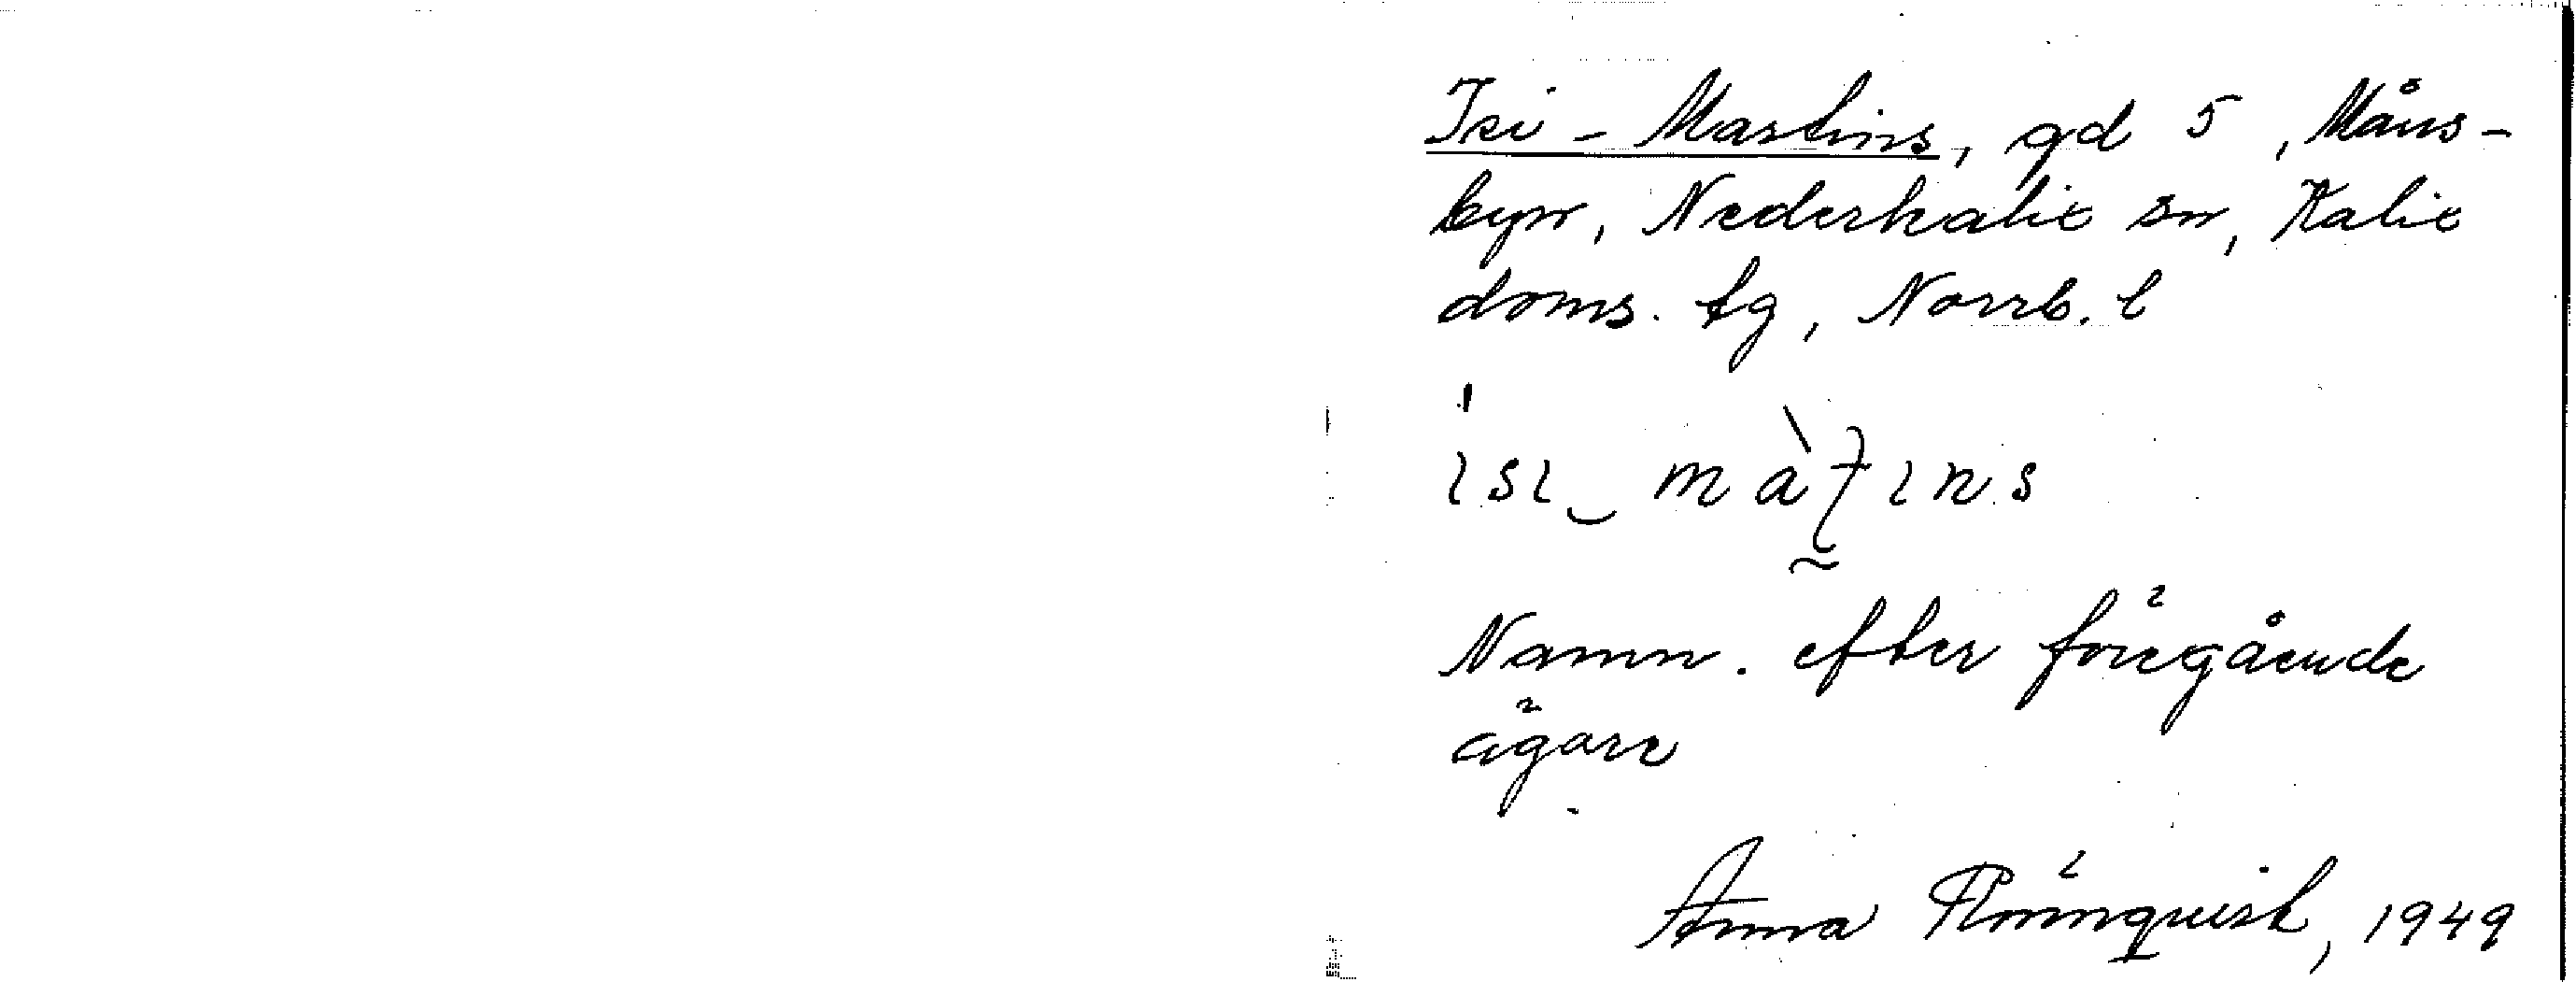 Isi-Martins, gd 5, Måns-
byn, Nederkalix sn, Kalix
doms. tg, Norrb. l
ısı‿màʄıns
Namn. efter föregående
ägare
Anna Rönnquist, 1949